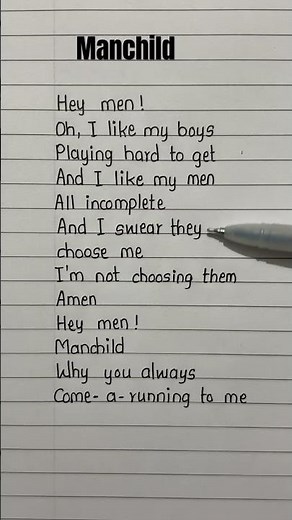 Manchild
Hey men!
Oh, I like my boys
Playing hard to get
And I like my men
All incomplete
And I swear they
choose me
I'm not choosing them
Amen
Hey men!
Manchild
Why you always
Come-a-running to me